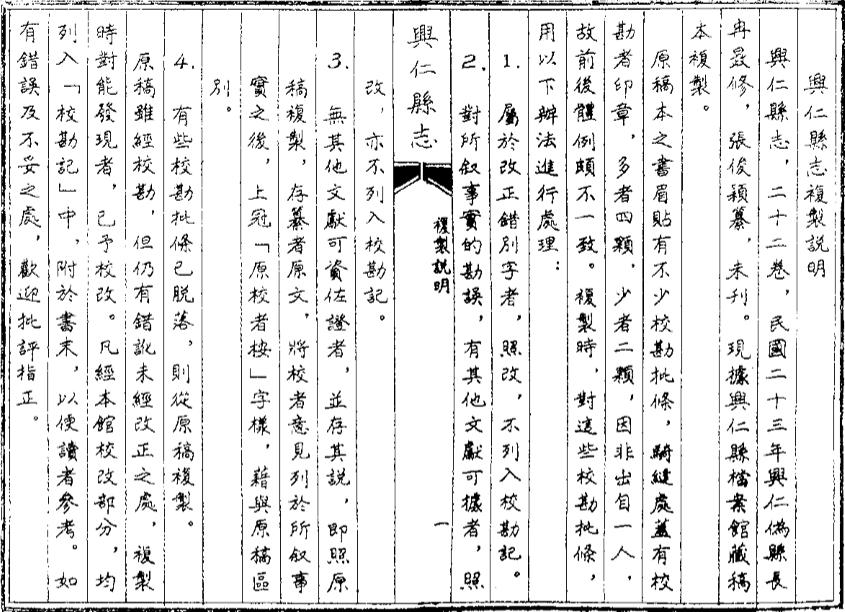 興仁縣志複製説明
興仁縣志，二十二卷，民國二十三年興仁偽縣長
冉晸修，張俊穎纂，未刊。現據興仁縣檔案館藏稿
本複製。
原稿本之書眉貼有不少校勘批條，騎縫處蓋有校
勘者印章，多者四顆，少者二顆，因非出自一人，
故前後體例頗不一致。複製時，對這些校勘批條，
用以下辦法進行處理：
1. 屬於改正錯別字者，照改，不列入校勘記。
2. 對所叙事實的勘誤，有其他文獻可據者，照
興仁縣志
複製説明
一
改，亦不列入校勘記。
3. 無其他文獻可資佐證者，並存其説，即照原
稿複製，存纂者原文，將校者意見列於所叙事
實之後，上冠「原校者桉」字樣，藉與原稿區
别。
4. 有些校勘批條已脱落，則從原稿複製。
原稿雖經校勘，但仍有錯訛未經改正之處，複製
時對能發現者，已予校改。凡經本館校改部分，均
列入「校勘記」中，附於書末，以便讀者參考。如
有錯誤及不妥之處，歡迎批評指正。